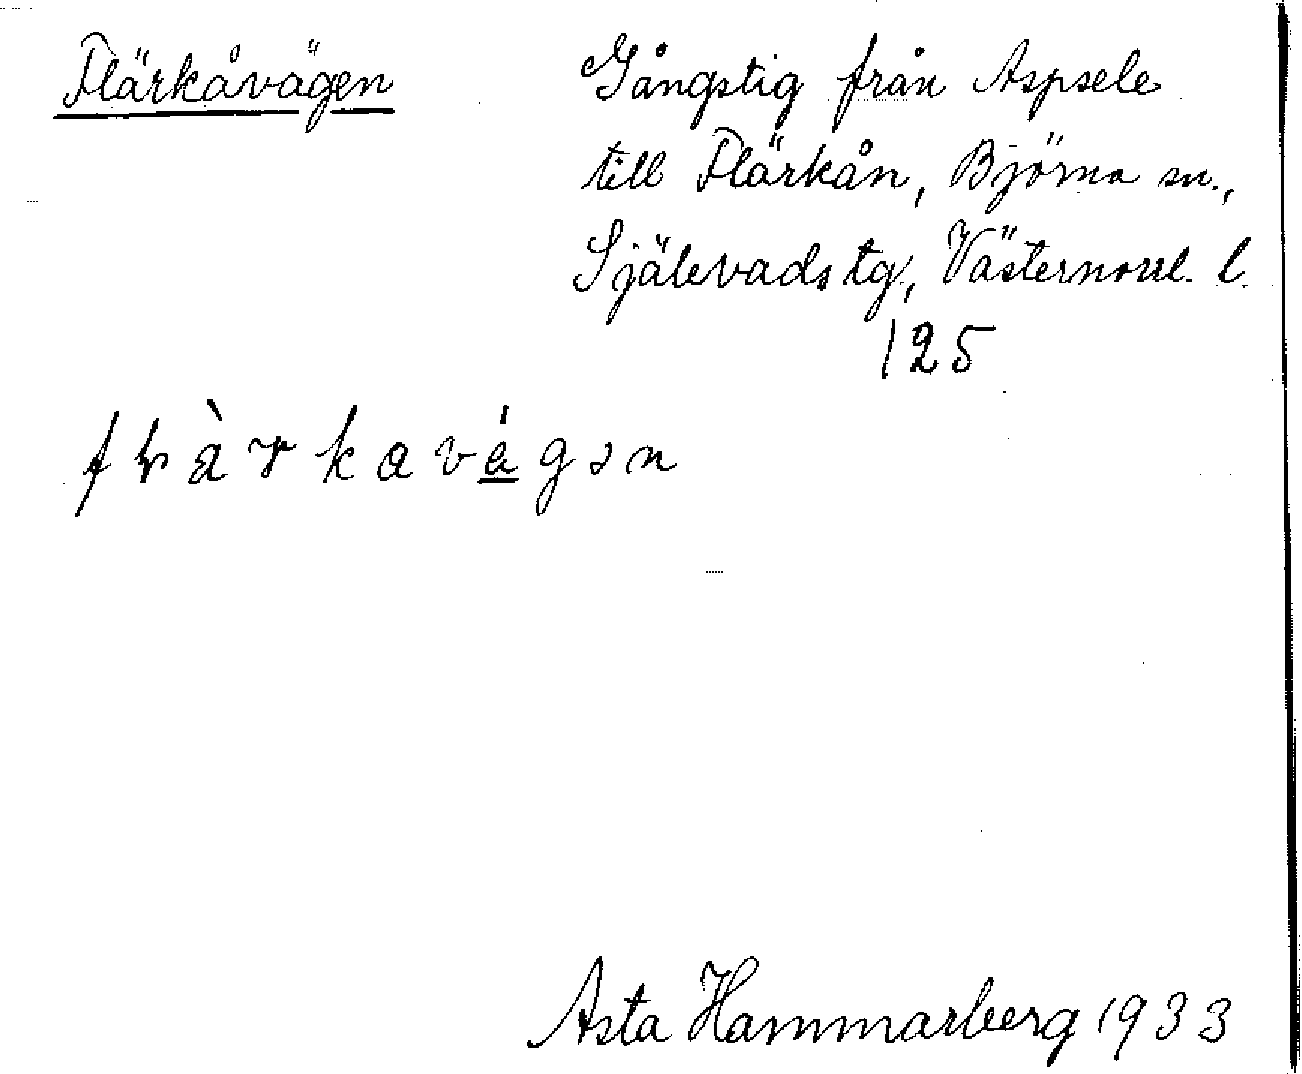 Flärkåvägen
Gångstig från Aspsele
till Flärkån, Björna sn.,
Själevads tg, Västernorrl. l.
125
Asta Hammarberg 1933